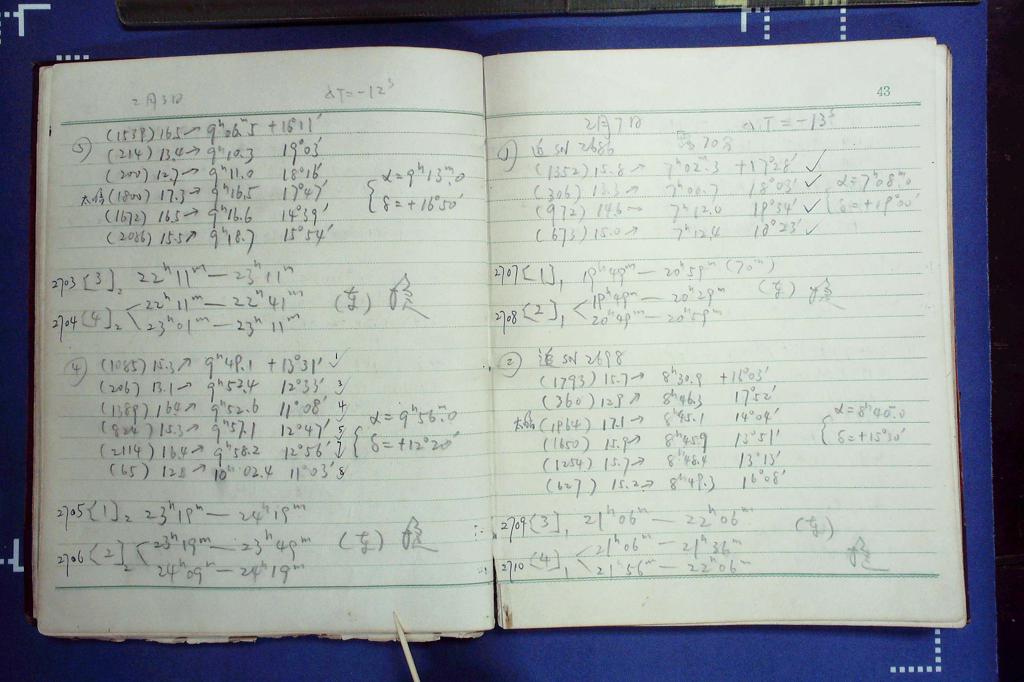 2月3日 ΔT=-12ˢ
③ (1539) 16.5→ 9ʰ06.ᵐ5 +16°11′
(214) 13.4→ 9ʰ10.3 19°03′
(200) 12.7→ 9ʰ11.0 18°16′
(1800) 17.3→ 9ʰ16.5 17°47′
(1672) 16.5→ 9ʰ16.6 14°39′
(2086) 15.5→ 9ʰ18.7 15°54′
{ α=9ʰ13ᵐ.0
δ=+16°50′
2703 [3]₂ 22ʰ11ᵐ—23ʰ11ᵐ
2704 [4]₂ < 22ʰ11ᵐ—22ʰ41ᵐ
23ʰ01ᵐ—23ʰ11ᵐ
④ (1085) 15.3→ 9ʰ49.1 +13°31′ 1
(206) 13.1→ 9ʰ52.4 12°33′ 3
(1389) 16.4→ 9ʰ52.6 11°08′ 4
15.3→ 9ʰ57.1 12°47′ 5
(2114) 16.4→ 9ʰ58.2 12°56′
(65) 12.8→ 10ʰ02.4 11°03′ 8
{ α=9ʰ56ᵐ.0
δ=+12°20′
2705 [1]₂ 23ʰ19ᵐ—24ʰ19ᵐ
2706 [2]₂ < 23ʰ19ᵐ—23ʰ49ᵐ
24ʰ09ᵐ—24ʰ19ᵐ
43
2月7日 ΔT=-13ˢ
① 追SN 2686 70分
(1352) 15.8→ 7ʰ02.ᵐ3 +17°28′ ✓
(306) 7ʰ00.7 18°03′ ✓
(972) 14.6→ 7ʰ12.0 19°34′ ✓
(673) 15.0→ 7ʰ12.4 18°23′ ✓
{ α=7ʰ08ᵐ.0
δ=+19°00′
2707 [1]₁ 19ʰ49ᵐ—20ʰ59ᵐ (70ᵐ)
2708 [2]₁ < 19ʰ49ᵐ—20ʰ29ᵐ
20ʰ49ᵐ—20ʰ59ᵐ
② 追SN 2698
(1793) 15.7→ 8ʰ30.9 +16°03′
(360) 12.9→ 8ʰ46.3 17°52′
(1964) 17.1→ 8ʰ45.1 14°04′
(1650) 15.9→ 8ʰ45.9 13°51′
(1254) 15.7→ 8ʰ48.4 13°13′
(627) 15.2→ 8ʰ49.3 16°08′
{ α=8ʰ40ᵐ.0
δ=+15°30′
2709 [3]₁ 21ʰ06ᵐ—22ʰ06ᵐ
2710 [4]₁ < 21ʰ06ᵐ—21ʰ36ᵐ
21ʰ56ᵐ—22ʰ06ᵐ